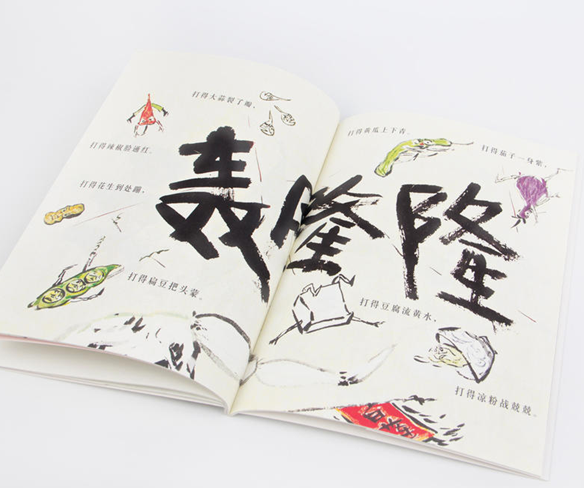 打得大蒜裂了瓣，
打得辣椒脸通红。
打得花生到处蹦，
打得扁豆把头蒙。
轰隆隆
打得黄瓜上下青，
打得茄子一身紫，
打得豆腐流黄水，
打得凉粉战兢兢。